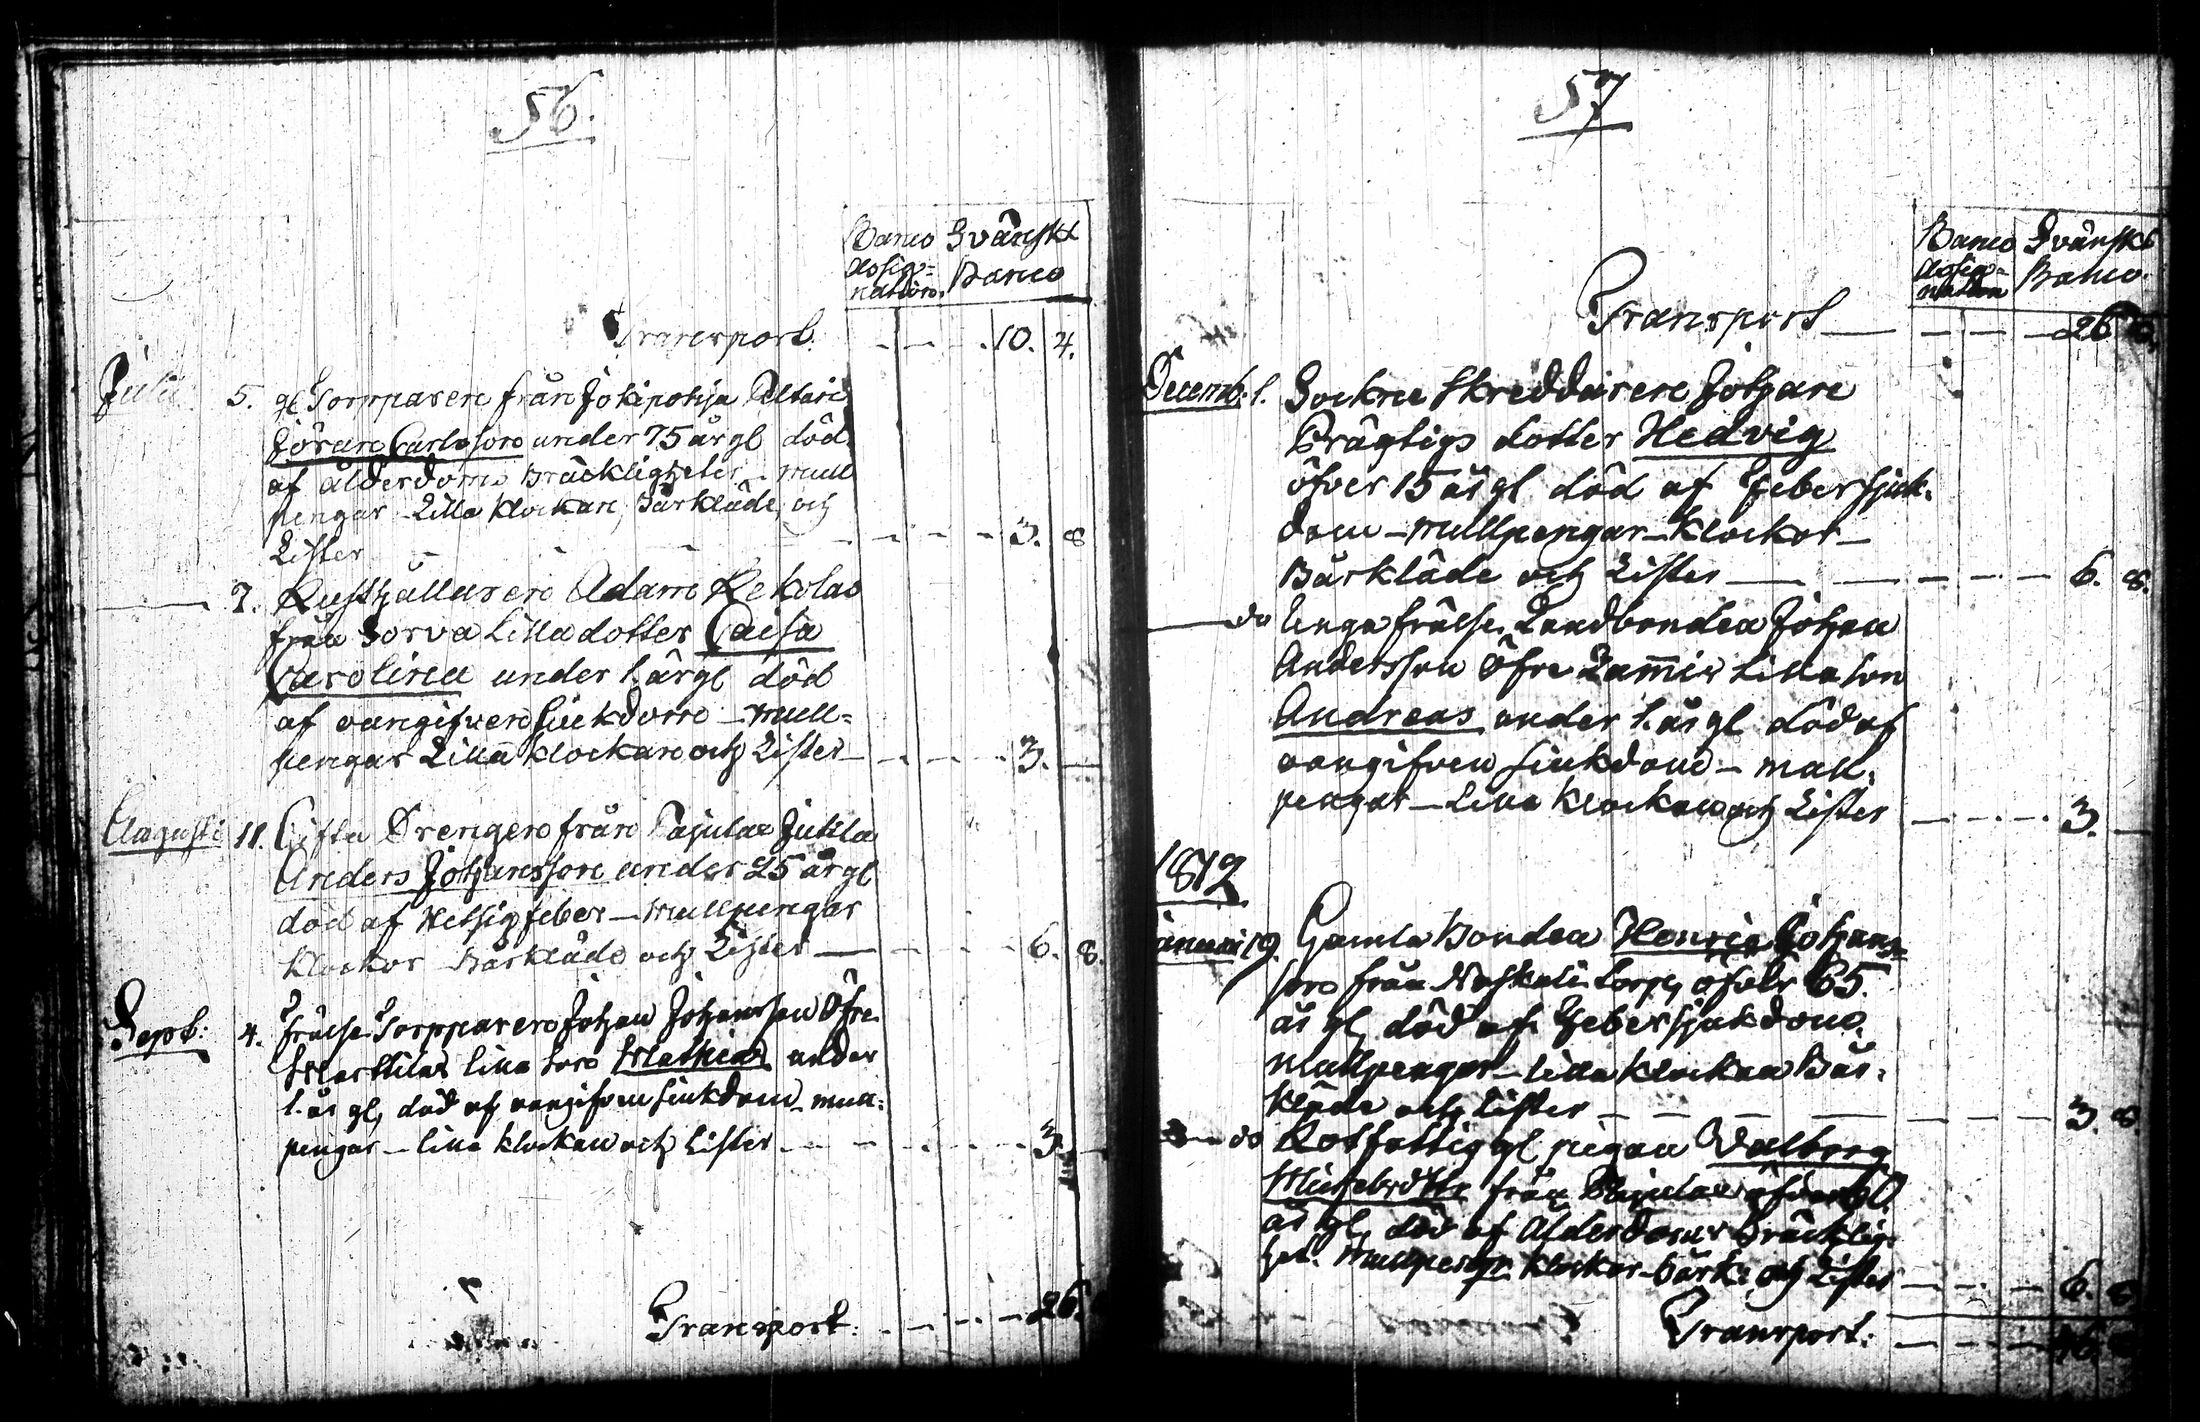 56.
Banco Svänskt
Assig=
nation. Banco
Transport. - - - 10. 4.
Julii 5. gl Torpparen från Jokipohja Peltari
Jöran Carlsson under 75 år gl död
af Ålderdoms Bräckligheter - mull
pengar - Lilla Klockan, Bårkläde, och
Lister - - - 3. 8
— 7. Rusthållaren Adam Rekolas
från Sorva Lilla dotter Caisa
Carolina under 1. år gl död
af oangifven siukdom - mull=
pengar Lilla Klockan och Lister - - - 3. —
Augusti 11. Gifta Drengen från Pajulax Jutila
Anders Johansson under 25 år gl
död af Hetsig feber - Mullpengar
Klockor Bårkläde och Lister — - - - 6. 8.
Sept: 4. frälse Torpparen Johan Johansson Öfre
Marttilas lilla son Mathias under
1. år gl, död af oangifven siukdom - mull=
pengar - lilla klockan och Lister - - - 3. —
Transport: - - - 26.
57
Banco Svänskt
Assig=
nation Banco.
Transport — - - - 26
Decemb: 1. Sockne Skreddaren Johan
Prägtigs dotter Hedvig
öfver 15 år gl död af Febersjuk=
dom - mullpengar - Klockor -
Bårkläde och Lister — - - - 6. 8.
— do Unga frälse Landbonden Johan
Andersson Öfre Lammis Lilla son
Andreas under 1. år gl död af
oangifven siukdom - mull=
pengar - Lilla Klockan och Lister - - - 3. —
1812
Januari 19. Gamla Bonden Henric Johans=
son från Torp, öfver 65.
år gl, död af Febersjukdom.
Mullpengar - lilla Klockan Bår=
kläde och Lister - - - 3. 8.
— do Rotfattig gl pigan Valborg
Michelsdttr från Pajulax öfver
år gl, död af Ålderdoms bräcklig=
het. Mullpengr. Klockor - bårk: och Lister - - - 6. 8.
Transport: - - -